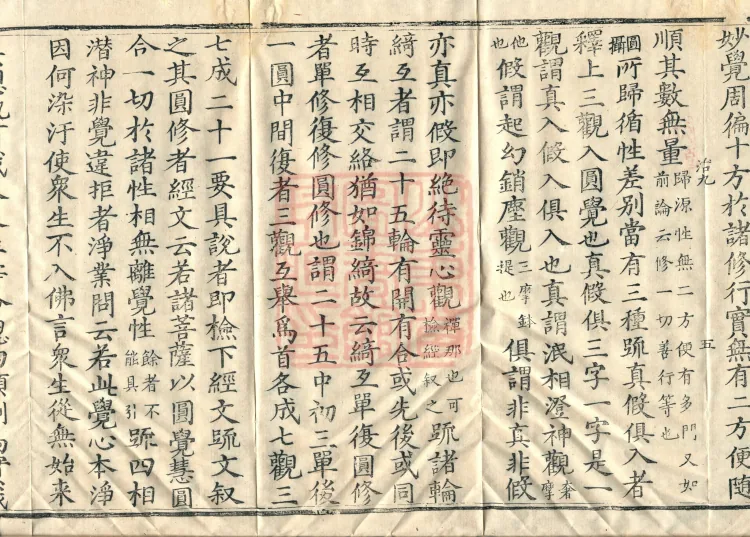 妙覺周徧十方於諸修行實無有二方便隨
治九 五
順其數無量歸源性無二方便有多門又如前論云修一切善行等也
圓攝所歸循性差別當有三種䟽真假俱入者
釋上三觀入圓覺也真假俱三字一字是一
觀謂真入假入俱入也真謂泯相澄神觀奢摩
他也假謂起幻銷塵觀三摩鉢提也俱謂非真非假
亦真亦假即絶待靈心觀禪那也可撿經叙之䟽諸輪
綺互者謂二十五輪有開有合或先後或同
時互相交絡猶如錦綺故云綺互單復圓修
者單修復修圓修也謂二十五中初三單後
一圓中間復者三觀互舉爲首各成七觀三
七成二十一要具說者即檢下經文䟽文叙
之其圓修者經文云若諸菩薩以圓覺慧圓
合一切於諸性相無離覺性餘者不能具引䟽四相
潛神非覺違拒者淨業問云若此覺心本淨
因何染汙使衆生不入佛言衆生從無始來